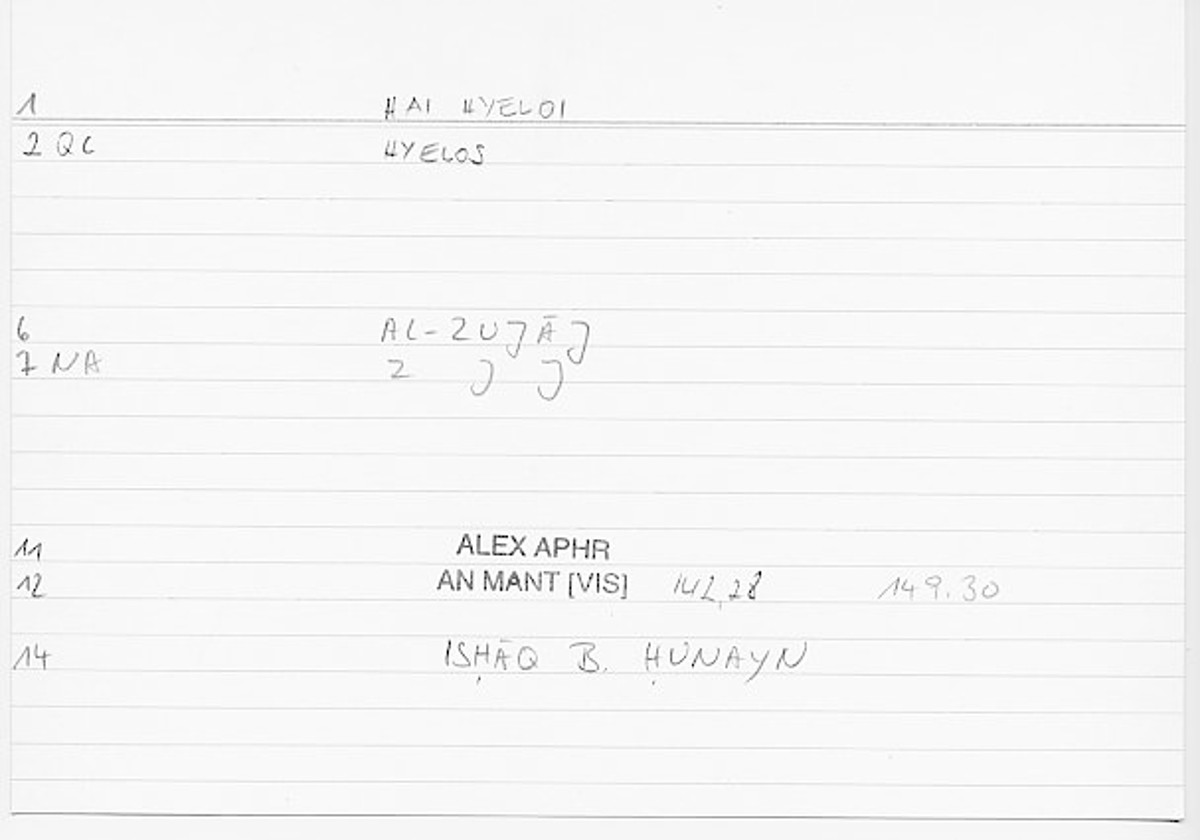 1 HAI HYELOI
2 QC HYELOS
6 AL-ZUJĀJ
7 NA Z J J
11 ALEX APHR
12 AN MANT [VIS] 142,28 149.30
14 ISḤĀQ B. ḤUNAYN